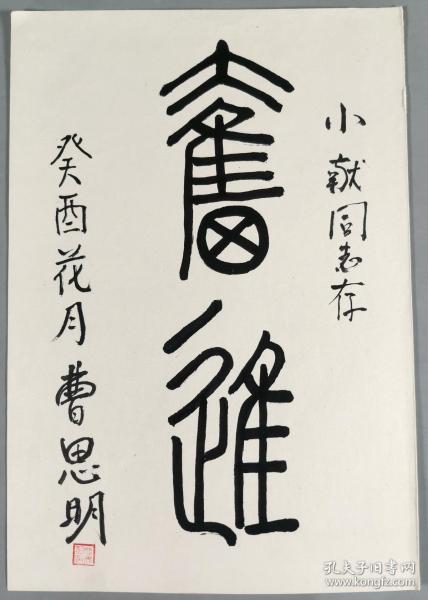 小献同志存
奮進
癸酉花月曹思明
孔夫子旧书网
www.kongfz.com